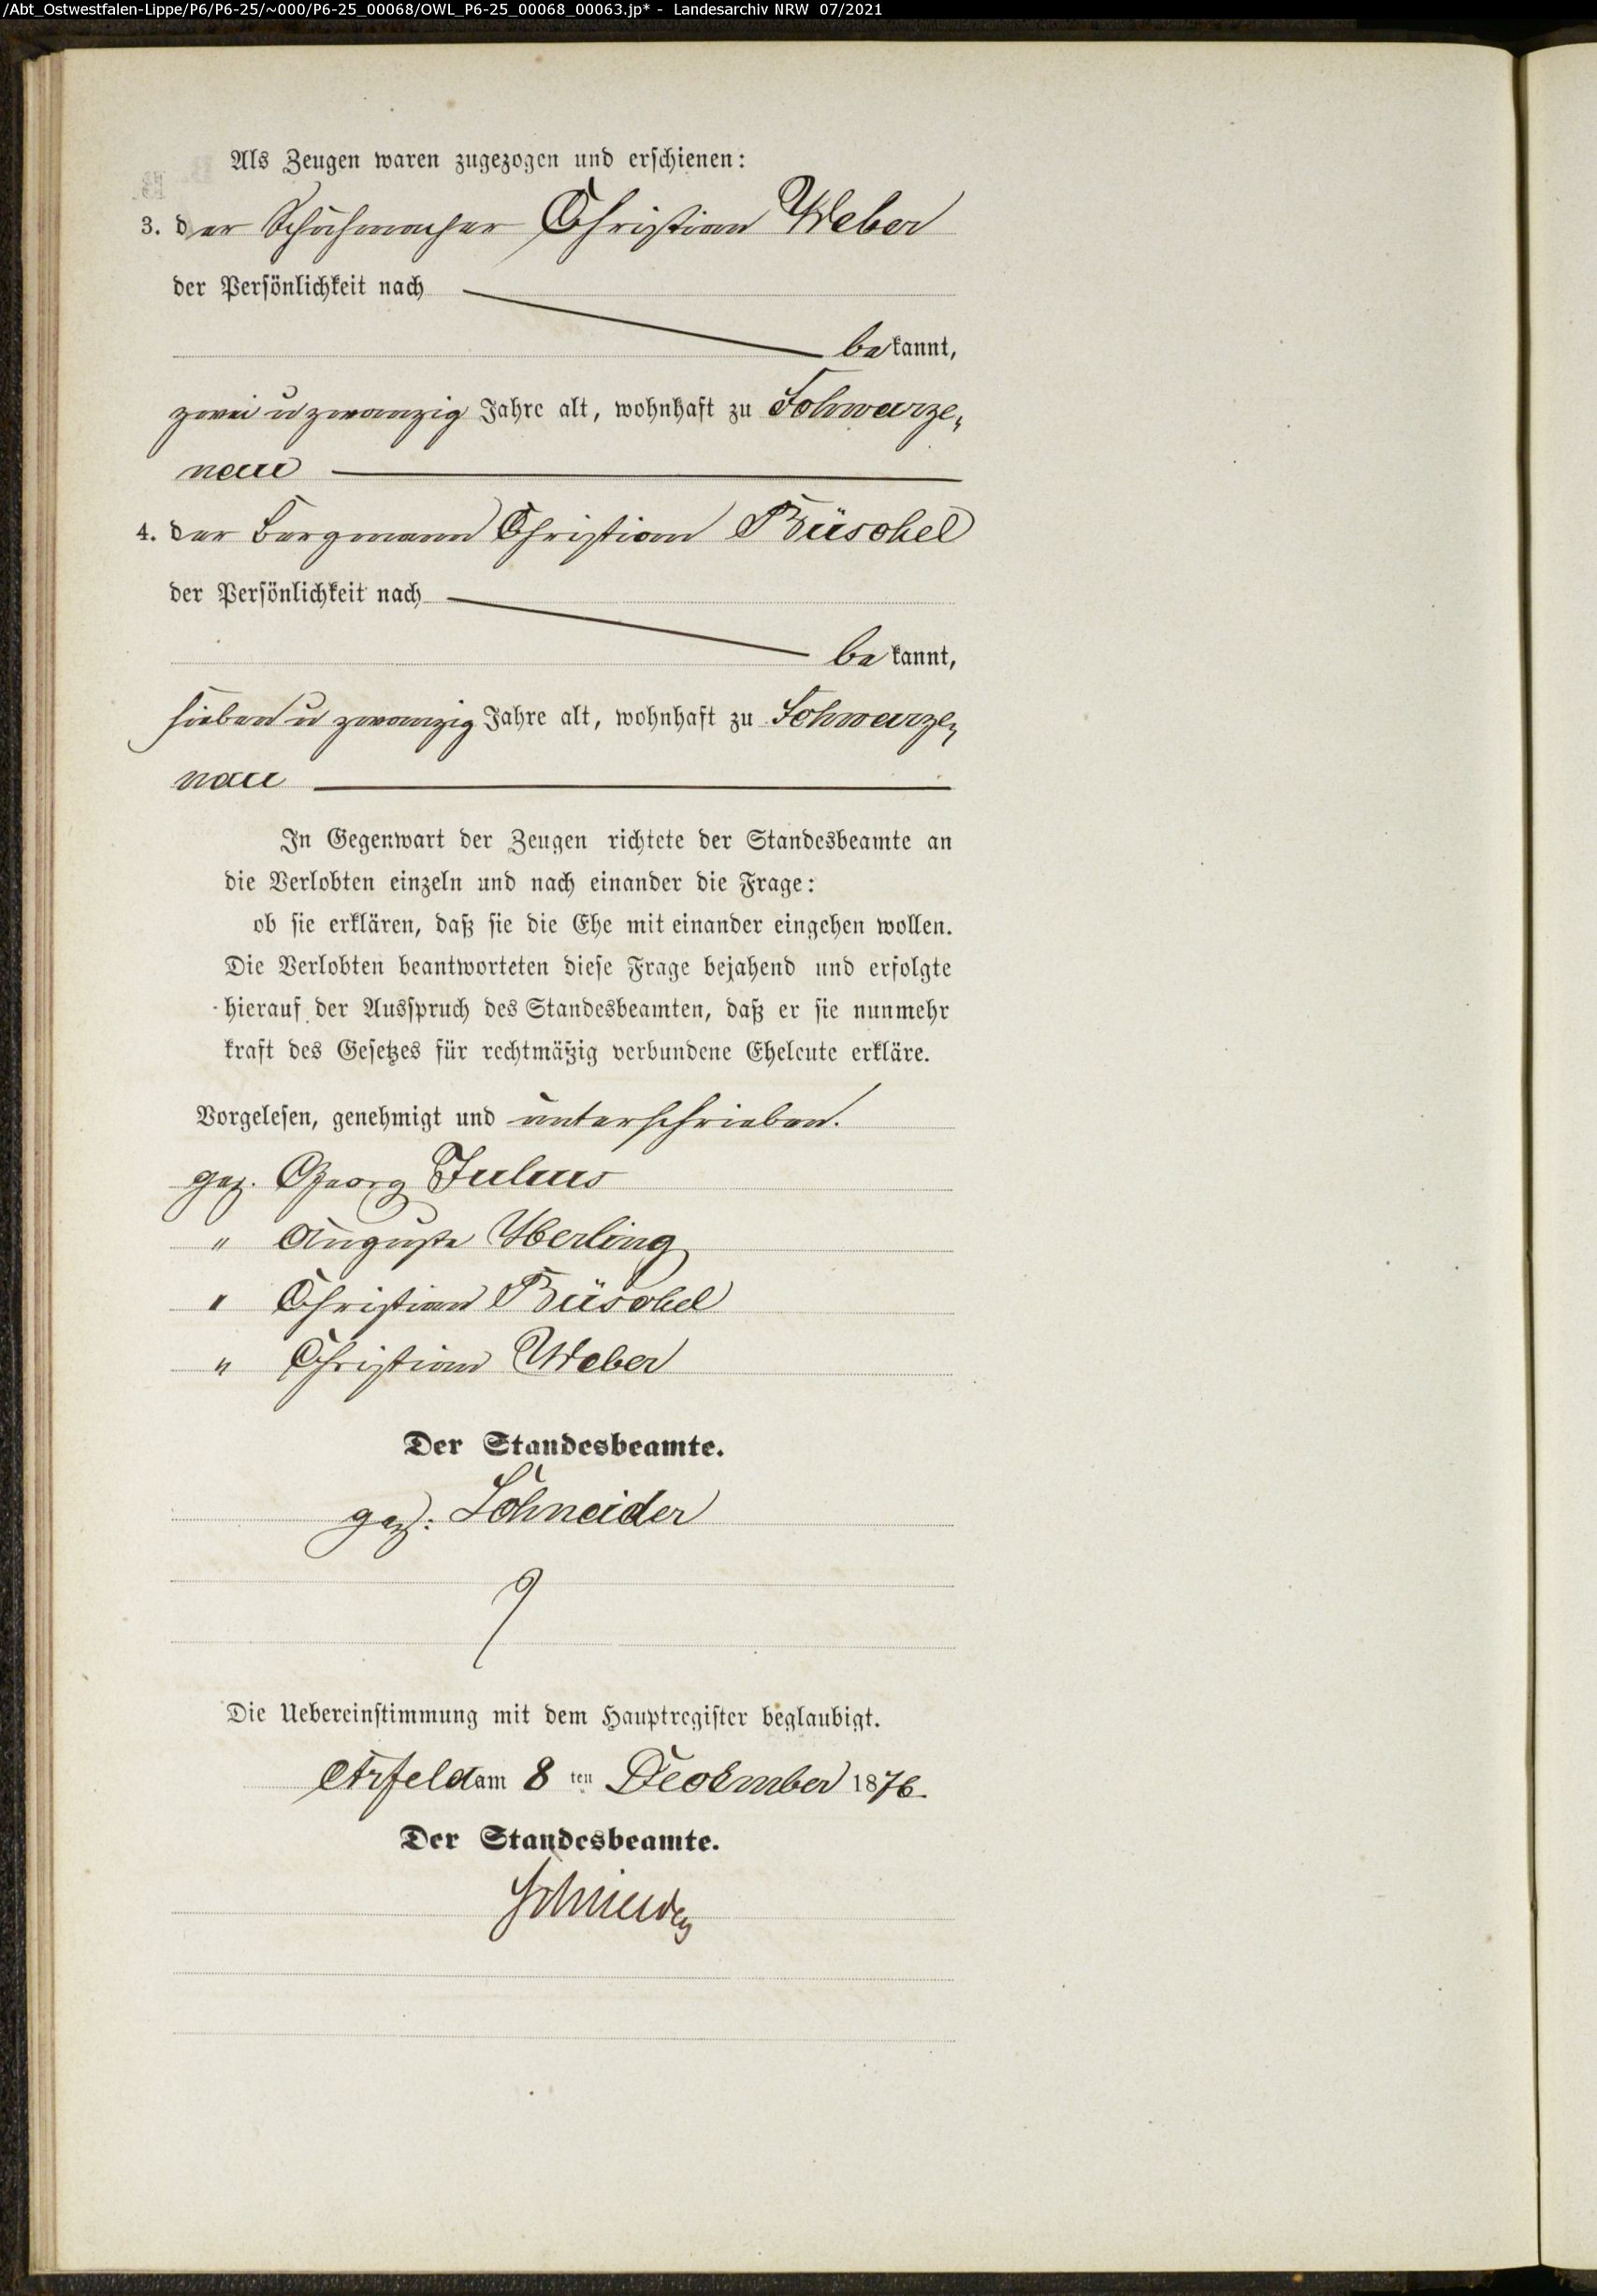 /Abt_Ostwestfalen-Lippe/P6/P6-25/~000/P6-25_00068/OWL_P6-25_00068_00063.jp* - Landesarchiv NRW 07/2021
Als Zeugen waren zugezogen und erschienen:
3. der Schuhmacher Christian Weber
der Persönlichkeit nach
bekannt,
zwei u zwanzig Jahre alt, wohnhaft zu Schwarze,
nau
4. der Bergmann Christian Büschel
der Persönlichkeit nach
bekannt,
sieben u zwanzig Jahre alt, wohnhaft zu Schwarze,
nau
In Gegenwart der Zeugen richtete der Standesbeamte an
die Verlobten einzeln und nach einander die Frage:
ob sie erklären, daß sie die Ehe mit einander eingehen wollen.
Die Verlobten beantworteten diese Frage bejahend und erfolgte
hierauf der Ausspruch des Standesbeamten, daß er sie nunmehr
kraft des Gesetzes für rechtmäßig verbundene Eheleute erkläre.
Vorgelesen, genehmigt und unterschrieben.
gez. Georg
" Auguste
" Christian Büschel
" Christian Weber
Der Standesbeamte.
gez: Schneider
Die Uebereinstimmung mit dem Hauptregister beglaubigt.
Arfeld am 8 ten December 1876.
Der Standesbeamte.
Schneider